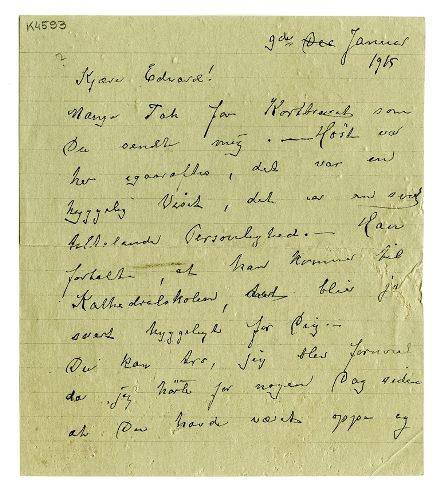 K4593
9de Dec Januar
1915
Kjære Edvard!
Mange Tak for Kortbrevet som
Du sendte mig. — Høst var
her igaaraftes, det var en
hyggelig Visit, det var en svært
tiltalende Personlighed. — Han
fortalte, at han kommer til
Kathedralskolen, det blir jo
svært hyggeligt for Dig. —
Du kan tro, jeg blev fornøiet
da jeg hørte for nogen Dag siden
at Du havde været oppe og